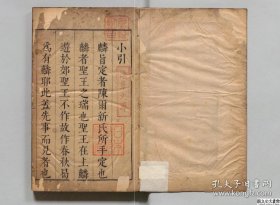 小引
麟旨定者陳爾新氏所手定也
麟者聖王之瑞也聖王在上麟
遊於郊聖王不作故作春秋曷
爲有麟耶此蓋先事而兆者也
孔夫子旧书网